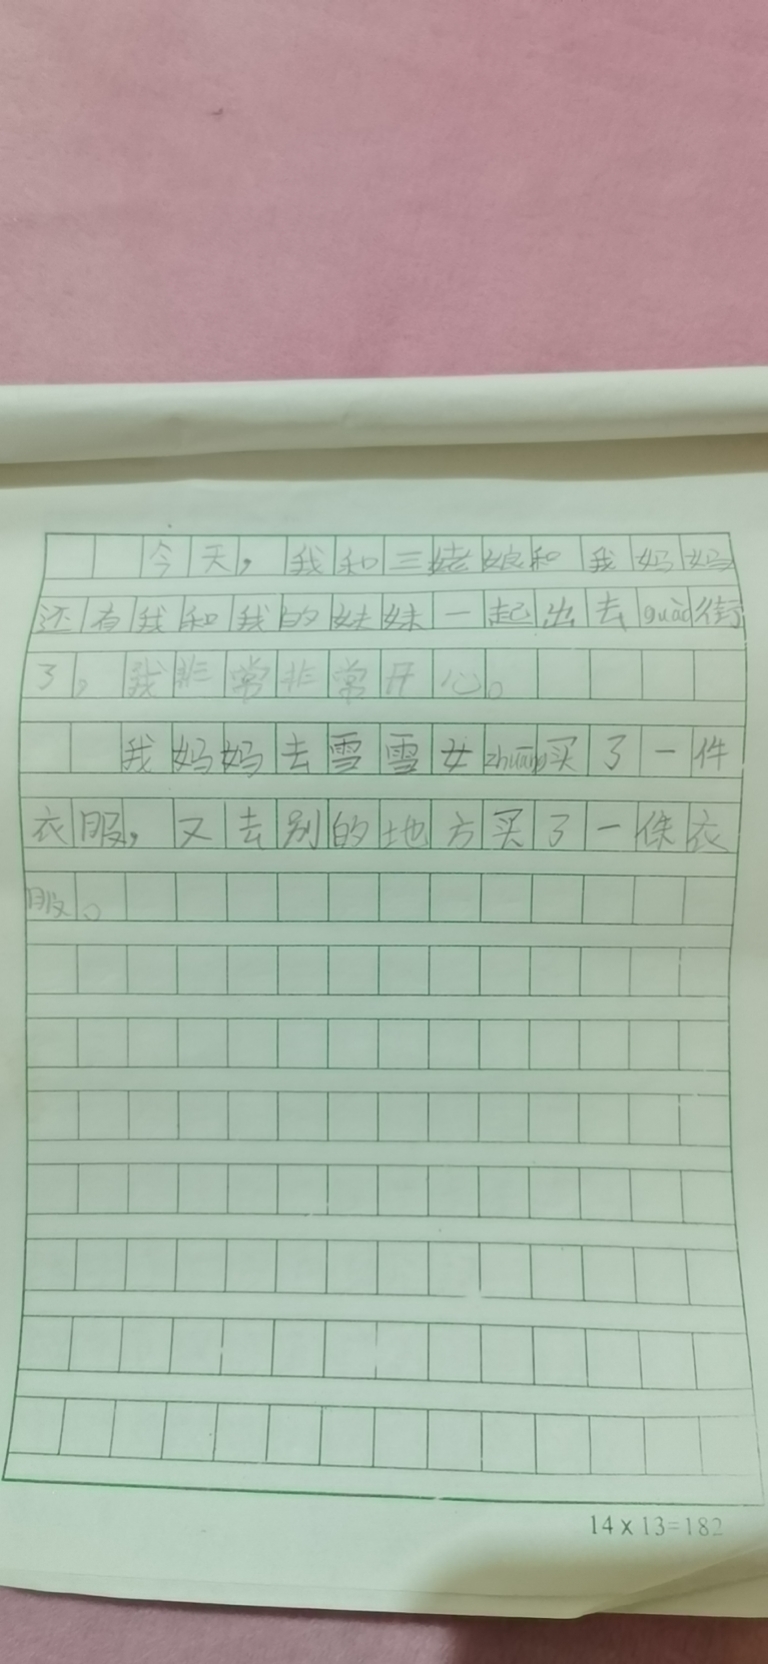 今天，我和三姥娘和我妈妈
还有我和我的妹妹一起出去guàn街
了，我非常非常开心。
我妈妈去雪雪女zhuāng买了一件
衣服，又去别的地方买了一件衣
服。
14 x 13=182